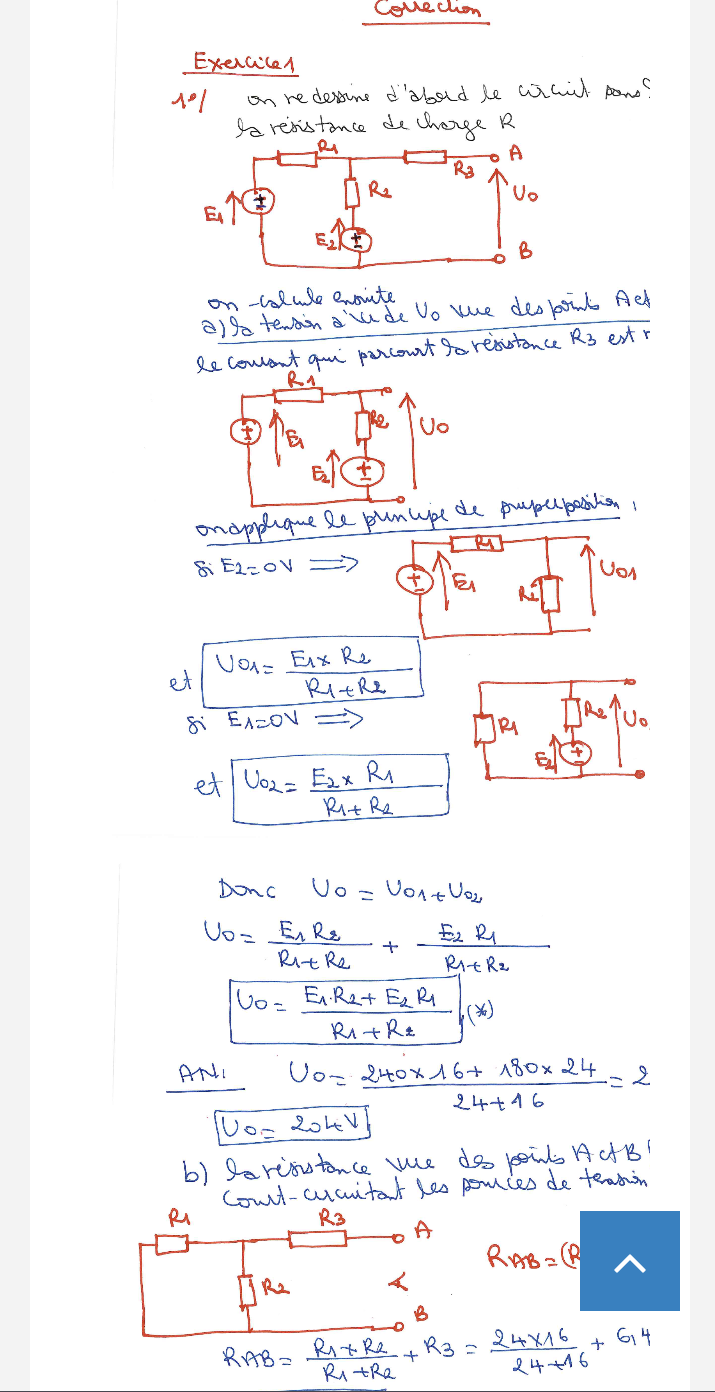 Correction
Exercice 1
1°/ on redessine d'abord le circuit sans
la résistance de charge R
R1
R3
A
R2
U0
E1
E2
B
on calcule ensuite
a) la tension à vide U0 vue des points A et
le courant qui parcourt la résistance R3 est
R1
R2
U0
E1
E2
on applique le principe de superposition :
R1
Si E2=0V ⟹
U01
E1
R2
et U01 = E1 x R2 / R1+R2
si E1=0V ⟹
R1
R2
U0
E2
et U02 = E2 x R1 / R1+R2
Donc U0 = U01+U02
U0 = E1 R2 / R1+R2 + E2 R1 / R1+R2
U0 = E1.R2+ E2 R1 / R1+R2 (*)
AN: U0 = 240x16+ 180x24 / 24+16 = 2
U0 = 204V
b) la résistance vue des points A et B
court-circuitant les sources de tension
R1
R3
A
RAB=(R
R2
B
RAB = R1 x R2 / R1+R2 + R3 = 24x16 / 24+16 + 6,4